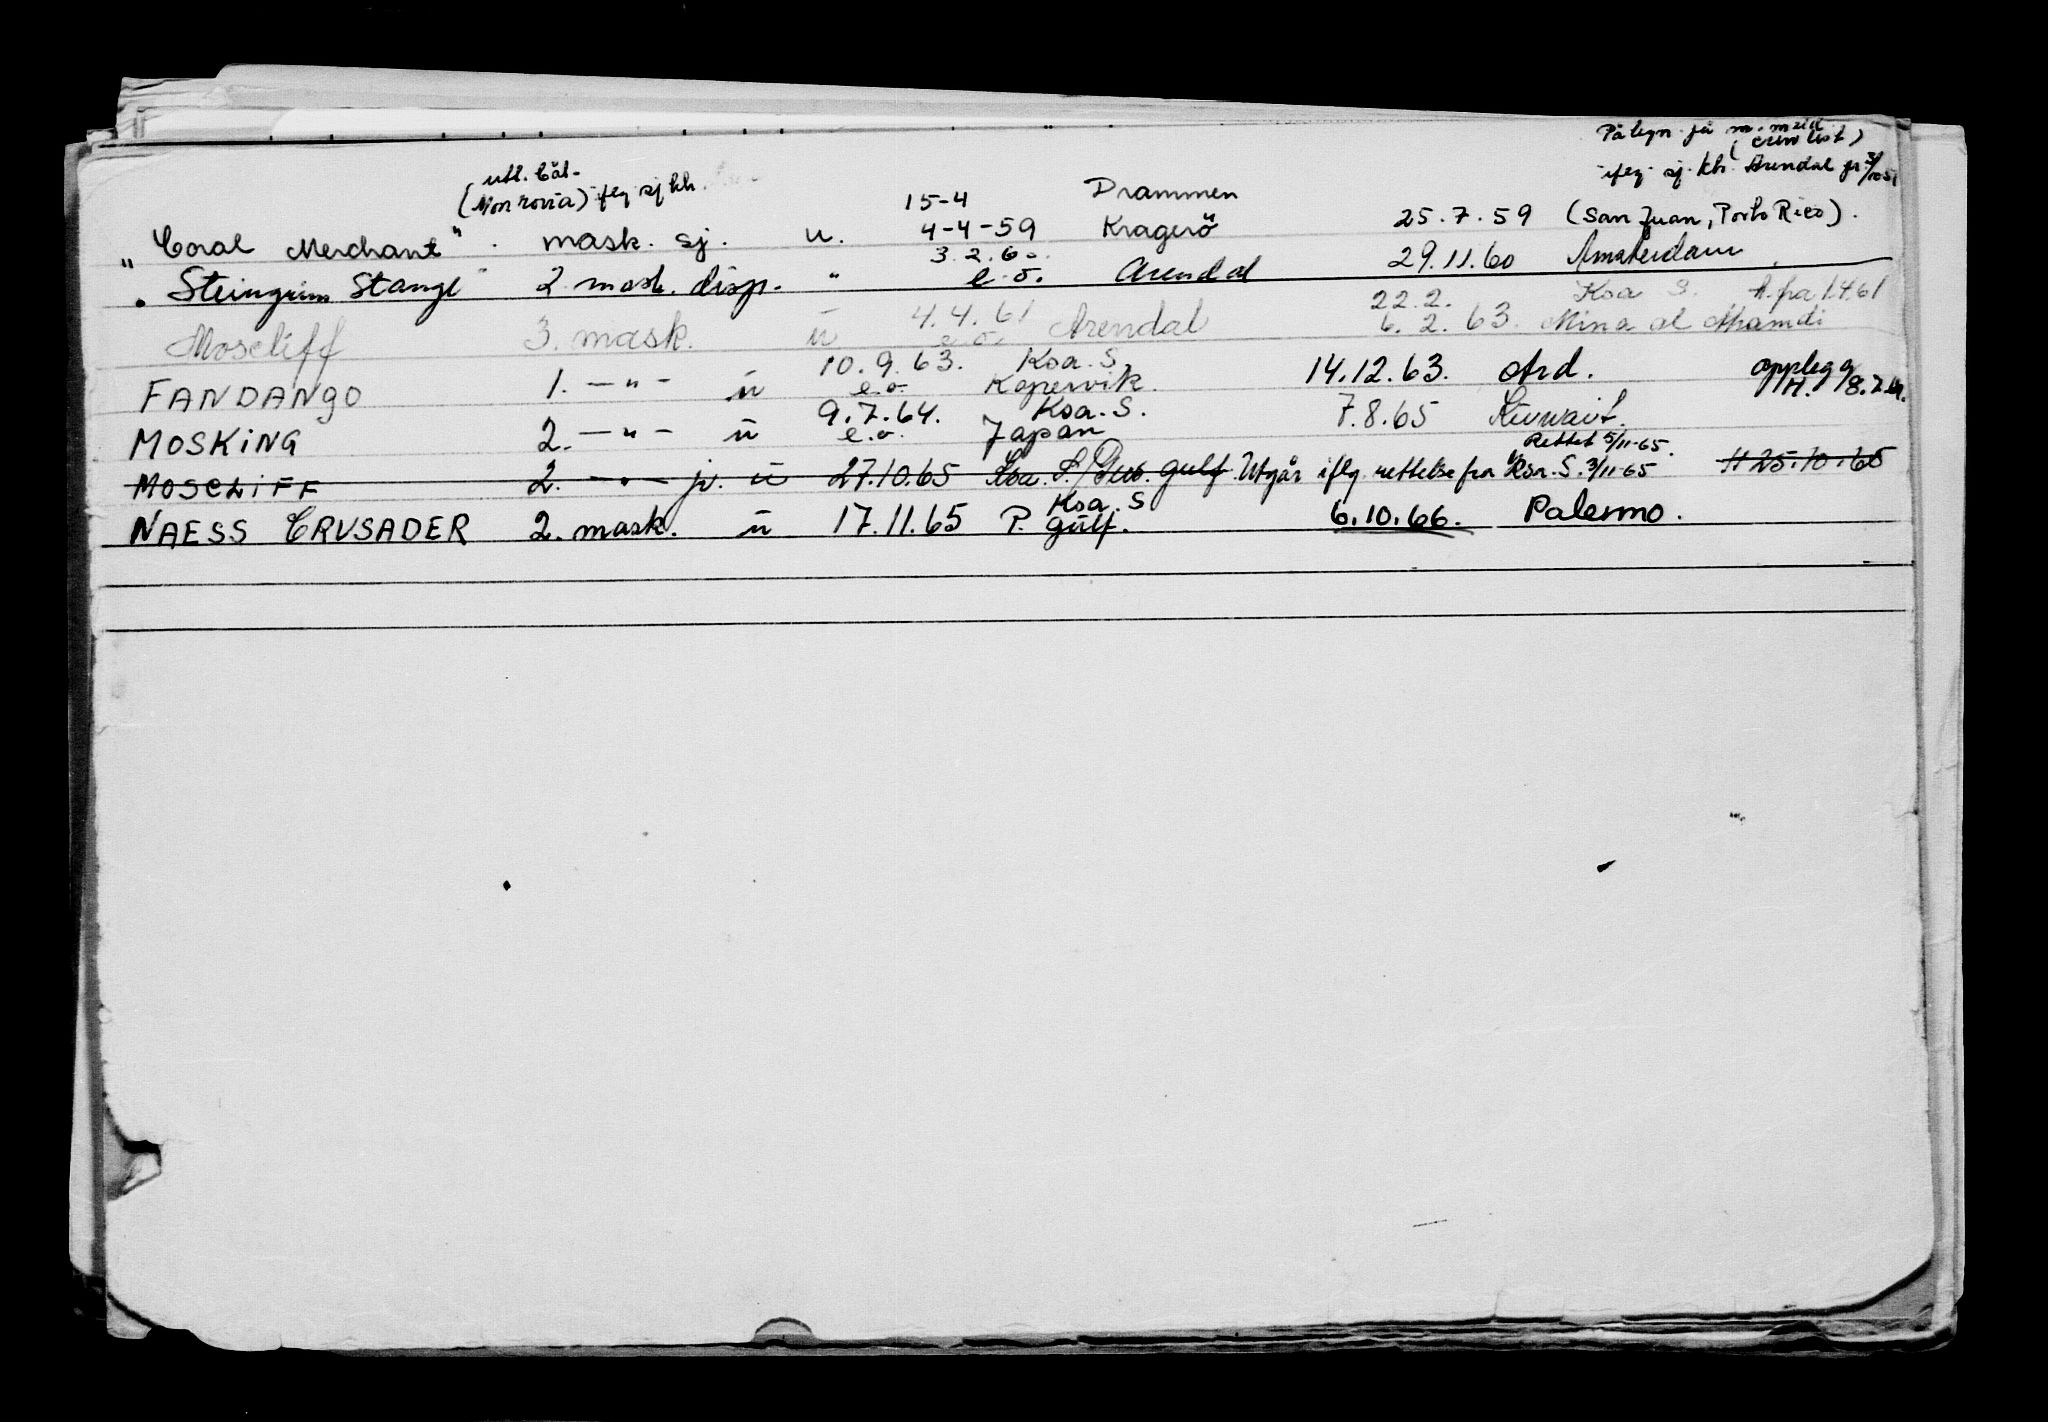 Påtegn på m. mall (crew list)
iflg. sj. kh. Arendal
utl. båt- (Monrovia) iflg sj kh.
"Coral Merchant". mask. sj. u. 15-4 4-4-59 Drammen Kragerö 25.7.59 (San Juan, Porto Rico).
"Steingrim Stange" 2 mask. disp. " 3.2.60. e.o. Arendal 29.11.60 Amsterdam
Moscliff 3. mask. u 4.4.61 e.o. Arendal 22.2. 6.2.63. Ksa S. Mina al Ahamdi A. fra 1.4.61
FANDANGO 1. — " — u 10.9.63. e.o. Ksa. S. Kopervik. 14.12.63. Ard. opplegg H. 8.7.64.
MOSKING 2. — " — u 9.7.64. e.o. Ksa. S. Japan 7.8.65 Kuwait.
Rettet 5/11-65.
MOSCLIFF 2. — " — jr. u 27.10.65 Ksa. S./Pers. gulf. Utgår iflg. rettelse fra Ksa. S. 3/11-65 H 25.10.65
NAESS CRUSADER 2. mask. u 17.11.65 Ksa. S P. gulf. 6.10.66. Palermo.